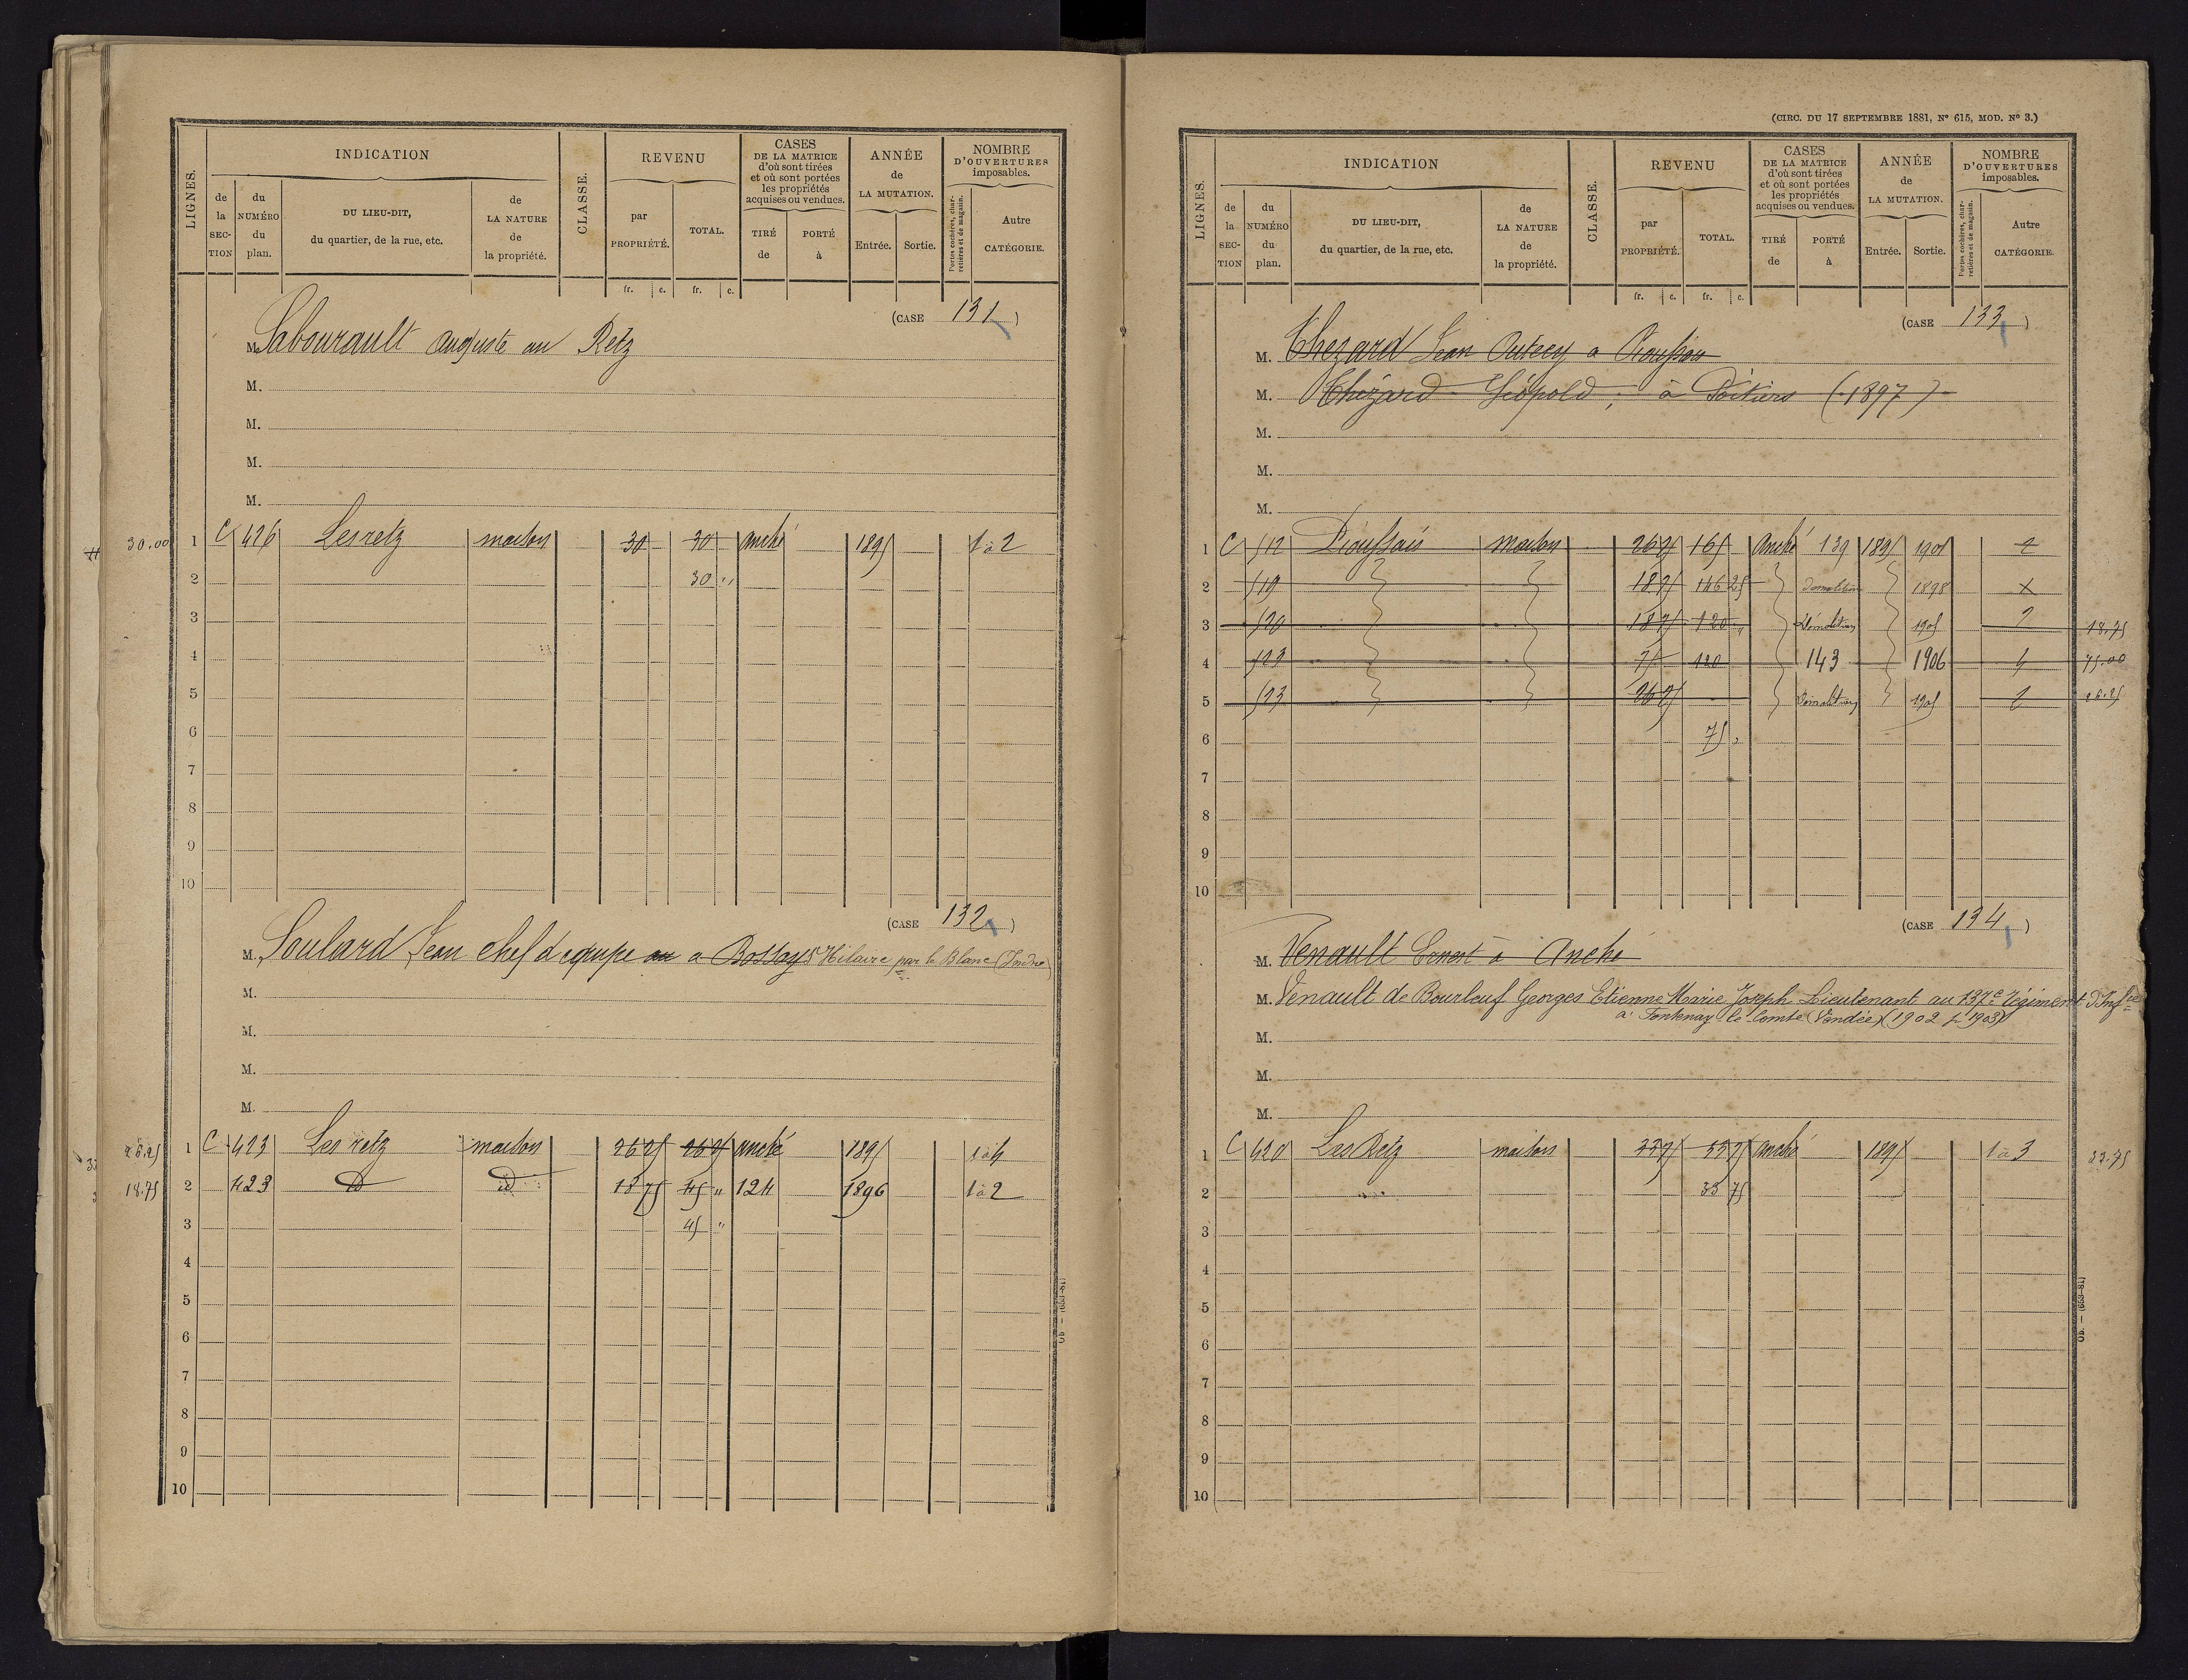 LIGNES.
INDICATION
de la SECTION
du NUMÉRO du plan.
DU LIEU-DIT, du quartier, de la rue, etc.
de LA NATURE de la propriété.
CLASSE.
REVENU
par PROPRIÉTÉ.
TOTAL.
CASES DE LA MATRICE d'où sont tirées et où sont portées les propriétés acquises ou vendues.
TIRÉ de
PORTÉ à
ANNÉE de LA MUTATION.
Entrée.
Sortie.
NOMBRE D'OUVERTURES imposables.
Portes cochères, charretières et de magasin.
Autre CATÉGORIE.
fr. c. fr. c.
(CASE 131)
M. Sabourault Auguste au Retz
M.
M.
M.
M.
30.00 1 C 426 Les retz maison 30 30 anché 1895 1 à 2
2 30 "
3
4
5
6
7
8
9
10
(CASE 132)
M. Soulard Jean chef d'equipe au a Bossay St Hilaire par le Blanc (Indre)
M.
M.
M.
M.
26.25 1 C 423 Les retz maison 26 25 26 25 anché 1895 1 à 4
18.75 2 423 d d 18 75 45 " 124 1896 1 à 2
3 45 "
4
5
6
7
8
9
10
OB. — (653-81)
(CIRC. DU 17 SEPTEMBRE 1881, N° 615, MOD. N° 3.)
LIGNES.
INDICATION
de la SECTION
du NUMÉRO du plan.
DU LIEU-DIT, du quartier, de la rue, etc.
de LA NATURE de la propriété.
CLASSE.
REVENU
par PROPRIÉTÉ.
TOTAL.
CASES DE LA MATRICE d'où sont tirées et où sont portées les propriétés acquises ou vendues.
TIRÉ de
PORTÉ à
ANNÉE de LA MUTATION.
Entrée.
Sortie.
NOMBRE D'OUVERTURES imposables.
Portes cochères, charretières et de magasin.
Autre CATÉGORIE.
fr. c. fr. c.
(CASE 133)
M. Thezard Jean a
M. Thézard Léopold, à Poitiers (1897)
M.
M.
M.
1 C 512 maison 26 25 165 Anché 139 1895 1901 2
2 519 18 75 146 25 Démolition 1898 X
3 520 18 75 120 " Démolition 1905 2 18.75
4 523 75 120 143 1906 4 75.00
5 523 26 25 Démolition 1905 2 26.25
6 75 "
7
8
9
10
(CASE 134)
M. Venault Ernest à Anché
M. Venault de Bourleuf Georges Etienne Marie Joseph Lieutenant au 137e Régiment d'Infie
à Fontenay-le-Comte (Vendée) (1902 pr 1903)
M.
M.
M.
1 C 420 Les Retz maison 33 75 33 75 anché 1895 1 à 3 33.75
2 33 75
3
4
5
6
7
8
9
10
OB. — (653-81)